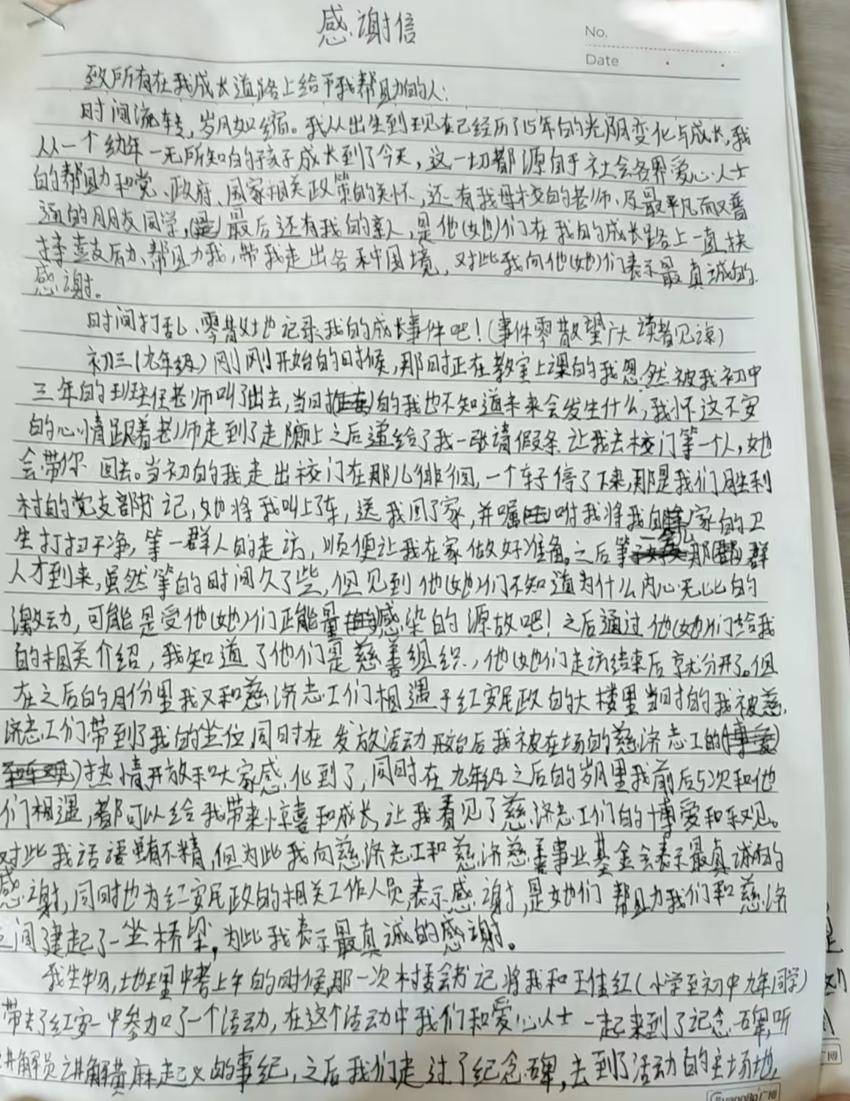 感谢信
No.
Date
致所有在我成长道路上给予我帮助的人:
时间流转,岁月如缩。我从出生到现在已经历了15年的光阴变化与成长,我
从一个幼年一无所知的孩子成长到了今天,这一切都源自于社会各界爱心人士
的帮助和党、政府、国家相关政策的关怀,还有我母校的老师,及最平凡而又普
通的朋友同学,最后还有我的亲人,是他(她)们在我的成长路上一直扶
持鼓励、帮助我,带我走出各种困境,对此我向他(她)们表示最真诚的
感谢。
时间打乱、零散地记录我的成长事件吧!(事件零散望广大读者见谅)
初三(九年级)刚刚开始的时候,那时正在教室上课的我忽然被我初中
三年的班任老师叫了出去,当时的我也不知道未来会发生什么,我怀这不安
的心情跟着老师走到了走廊上之后递给了我一张请假条让我去校门等一个人,她
会带你回去。当初的我走出校门在那儿徘徊,一个车子停了下来,那是我们胜利
村的党支部书记,她将我叫上了车,送我回了家,并嘱咐我将我家的卫
生打扫干净,等一群人的走访,顺便让我在家做好准备。之后等一会儿那群
人才到来,虽然等的时间久了些,但见到他(她)们不知道为什么内心无比的
激动,可能是受他(她)们正能量感染的源故吧!之后通过他(她)们给我
的相关介绍,我知道了他们是慈善组织,他(她)们走访结束后就分开了。但
在之后的月份里我又和慈济志工们相遇于红安民政的大楼里当时的我被慈
济志工们带到了我的坐位同时在发放活动开始后我被在场的慈济志工的
热情开放和大家感化到了,同时在九年级之后的岁月里我前后5次和他
们相遇,都可以给我带来惊喜和成长,让我看见了慈济志工们的博爱和乐观。
对此我话语虽有不精,但为此我向慈济志工和慈济慈善事业基金会表示最真诚的
感谢,同时也为红安民政的相关工作人员表示感谢,是她们帮助我们和慈济
之间建起了一坐桥梁,为此我表示最真诚的感谢。
我生物,地理中考上午的时候,那一次村委会书记将我和王佳红(小学至初中九年同学)
带去了红安一中参加了一个活动,在这个活动中我们和爱心人士一起来到了记念碑,听
讲解员讲解黄麻起义的事纪,之后我们走过了纪念碑,去到了活动的主场地,